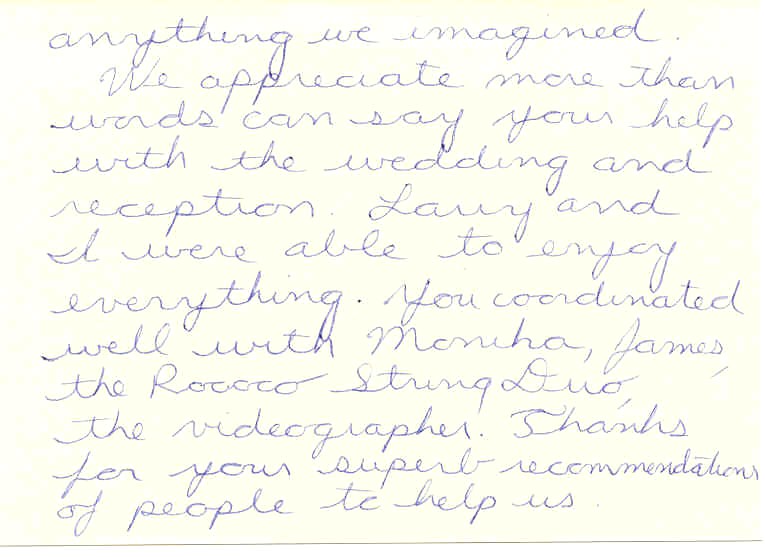 anything we imagined.
We appreciate more than
words can say your help
with the wedding and
reception. Larry and
I were able to enjoy
everything. You coordinated
well with Monika, James,
the Rococo String Duo,
the videographer. Thanks
for your superb recommendations
of people to help us.